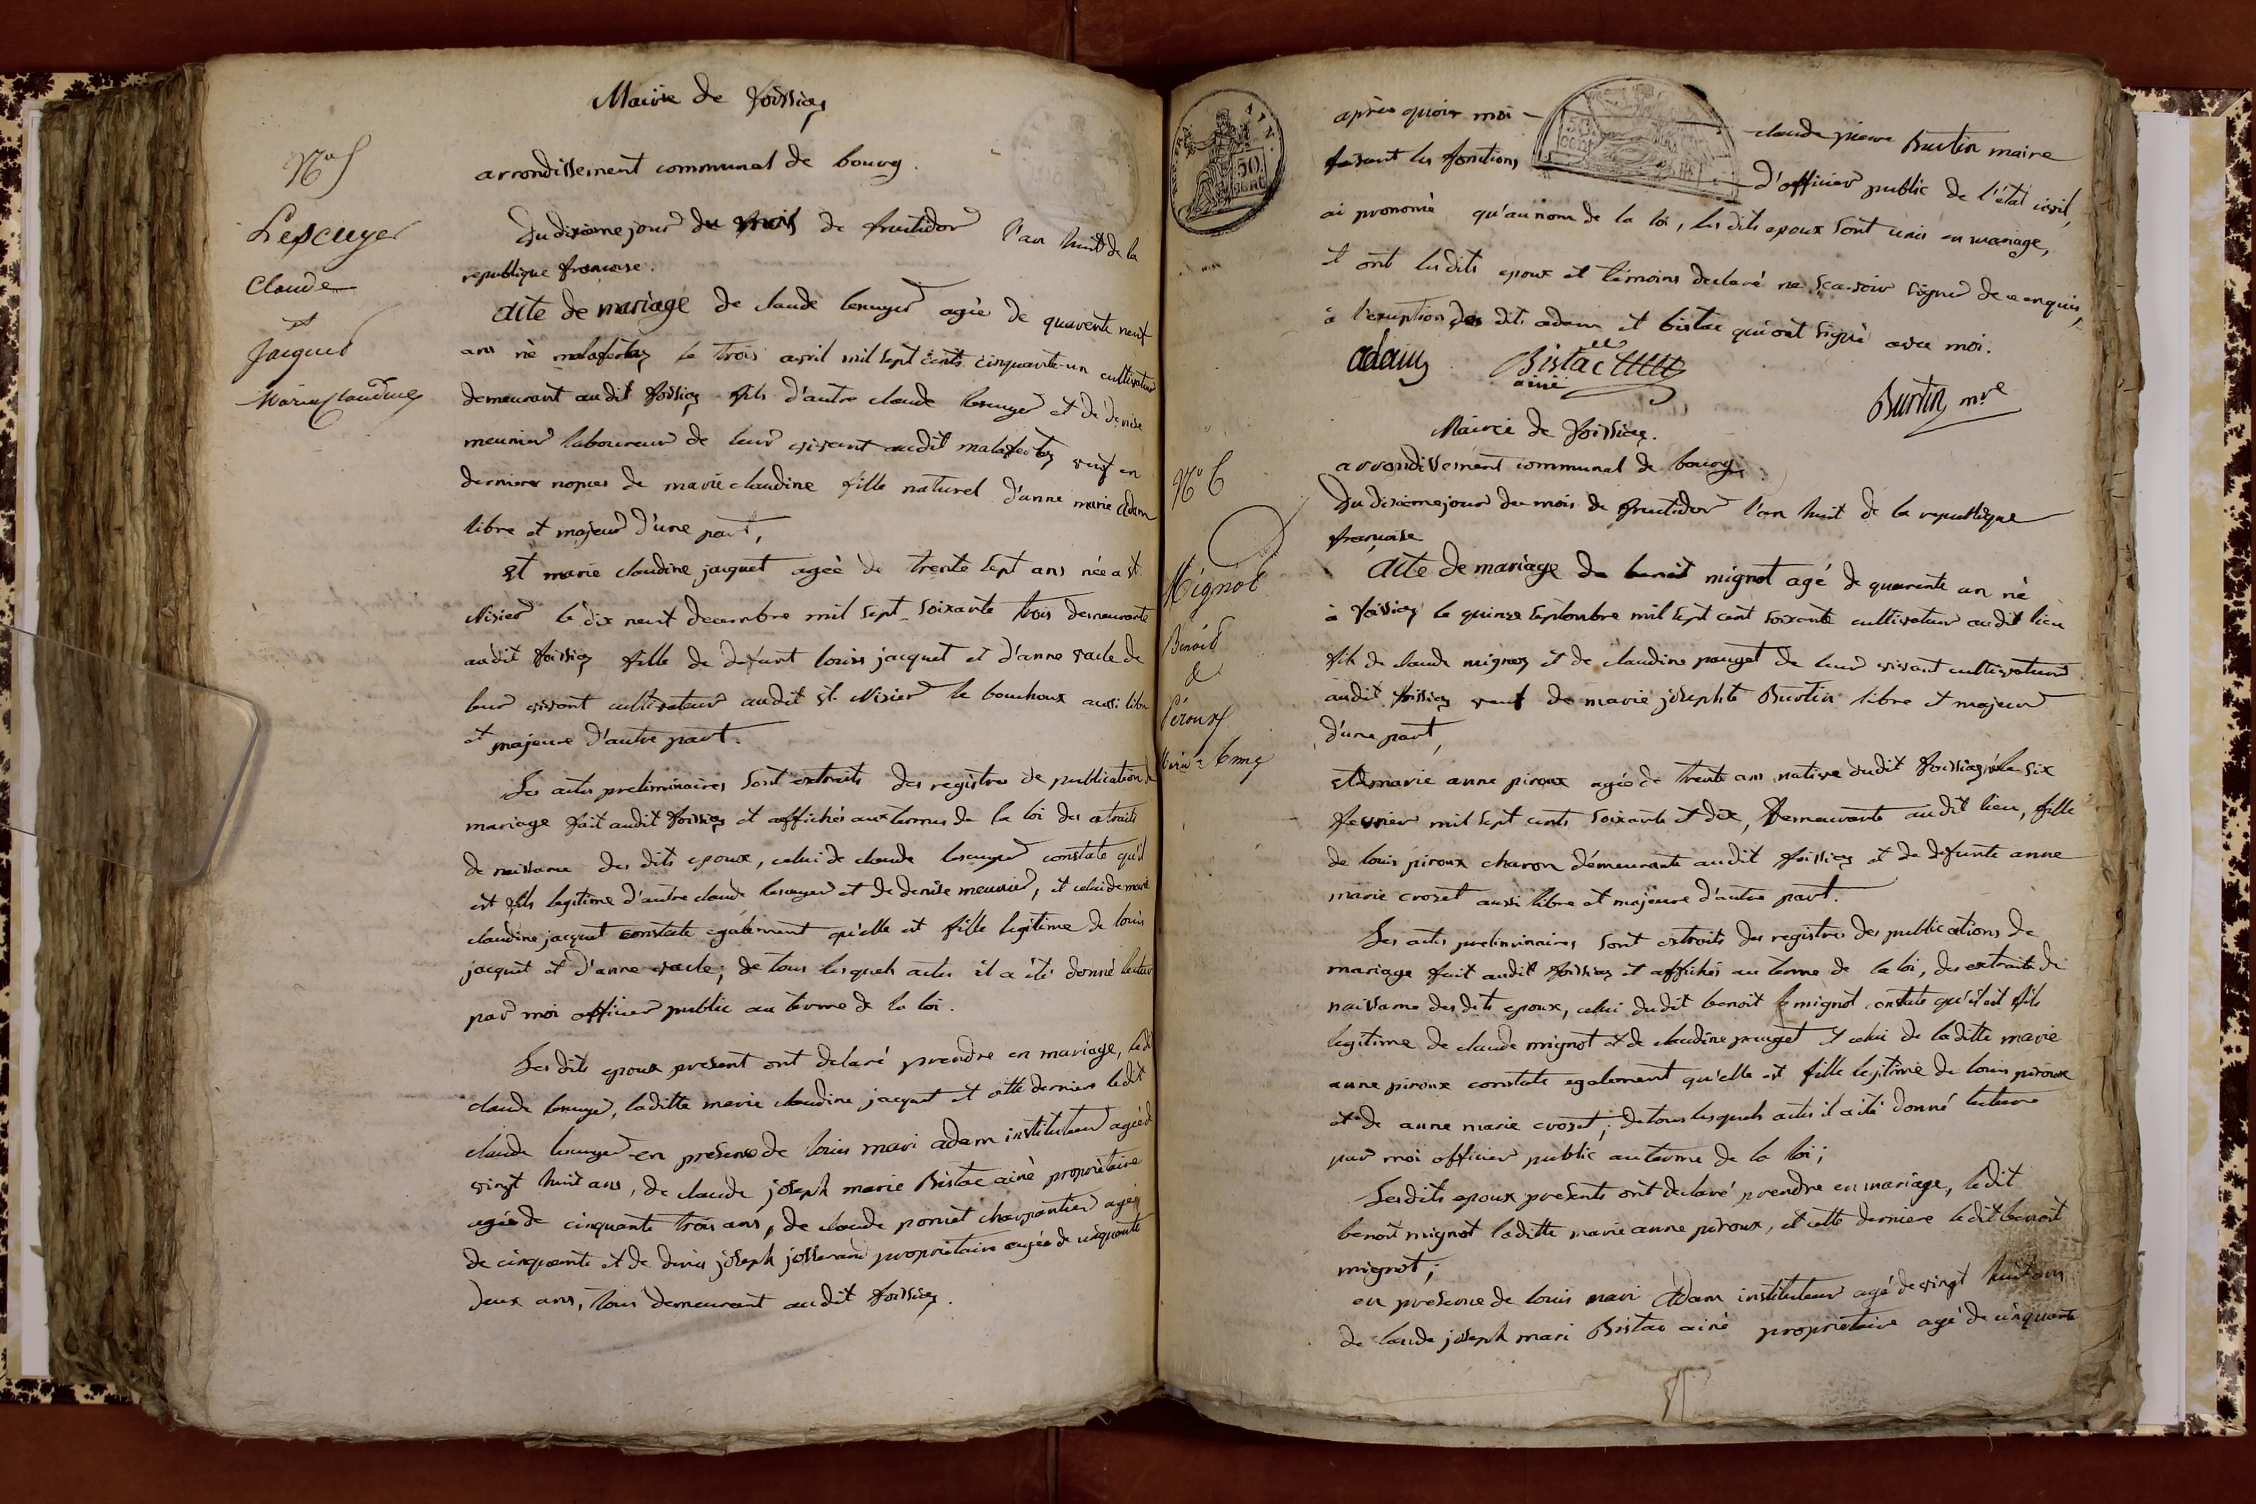 Mairie de foissiag
arrondissement communal de bourg.
Nº 5
Lescuyer
Claude
et
Jacquet
Marie Claudine
Du dixieme jour du mois de fructidor l'an huit de la
republique francoise.
Acte de mariage de claude lescuyer agée de quarente neuf
ans né malafretaz le trois avril mil sept cents cinquante-un cultivateur
demeurant audit foissiag fils d'autre claude lescuyer et de denise
meunier laboureur de leur vivant audit malafretaz veuf en
derniere nopces de marie claudine fille naturel d'anne marie Adam
libre et majeur d'une part,
Et marie claudine jacquet agée de trente sept ans née a st
Nisier le dix neuf decembre mil sept soixante trois demeurante
audit foissiag fille de defunt louis jacquet et d'anne vacle de
leur vivant cultivateur audit st. Nisier le bouchoux aussi libre
et majeure d'autre part.
Les actes preliminaires sont extraits des registres de publication de
mariage fait audit foissiag et affichés aux termes de la loi des extraits
de naissance des dits epoux, celui de claude lescuyer constate qu'il
est fils legitime d'autre claude lescuyer et de denise meunier, et celui de marie
claudine jacquet constate egalement qu'elle est fille legitime de louis
jacquet et d'anne vacle; de tous lesquels actes il a été donné lecture
par moi officier public au terme de la loi.
Les dits epoux present ont declaré prendre en mariage, ledit
claude lescuyer, laditte marie claudine jacquet et cette derniere ledit
claude lescuyer en presence de louis mari adam instituteur agée de
vingt huit ans, de claude joseph marie Bistac ainé propriétaire
agée de cinquante trois ans, de claude poncet charpantier agée
de cinquante et de denis joseph josserand propriétaire agée de cinquante
deux ans, tous demeurant audit foissiag.
50
après quoir moi - claude pierre Burtin maire
fesant les fonctions d'officier public de l'état civil,
ai prononcé qu'au nom de la loi, les dits epoux sont unis en mariage,
et ont lesdits epoux et témoins declaré ne scavoir signer de ce enquis,
à l'exception des dits adam et bistac qui ont signé avec moi.
adam Bistac
ainé
Burtin mre
Mairie de foissiag.
arrondissement communal de bourg.
Nº 6
Mignot
Benoit
&
Péroux
Marie Anne
Du dixieme jour du mois de fructidor l'an huit de la republique
francoise
Acte de mariage de benoit mignot agé de quarente an né
à foissiag le quinze septembre mil sept cent soixante cultivateur audit lieu
fils de claude mignot et de claudine pauget de leur vivant cultivateur
audit foissiag veuf de marie josephte Burtin libre et majeur
d'une part,
Et marie anne piroux agée de trente ans native dudit foissiag le six
fevrier mil sept cents soixante et dix, demeurante audit lieu, fille
de louis piroux charon démeurante audit foissiag et de defunte anne
marie crozet aussi libre et majeure d'autre part.
Les actes preliminaires sont extraits des registres des publications de
mariage fait audit foissiag et affichés au terme de la loi, des extraits de
naissance des dits epoux, celui dudit benoit mignot constate qu'il est fils
legitime de claude mignot et de claudine pauget et celui de laditte marie
anne piroux constate egalement qu'elle est fille legitime de louis piroux
et de anne marie crozet; de tous lesquels actes il a été donné lecture
par moi officier public au terme de la loi;
Lesdits epoux presents ont declaré prendre en mariage, ledit
benoit mignot laditte marie anne piroux, et cette derniere ledit benoit
mignot;
en presence de louis mari Adam instituteur agé de vingt huit ans
de claude joseph mari Bistac ainé propriétaire agé de cinquante